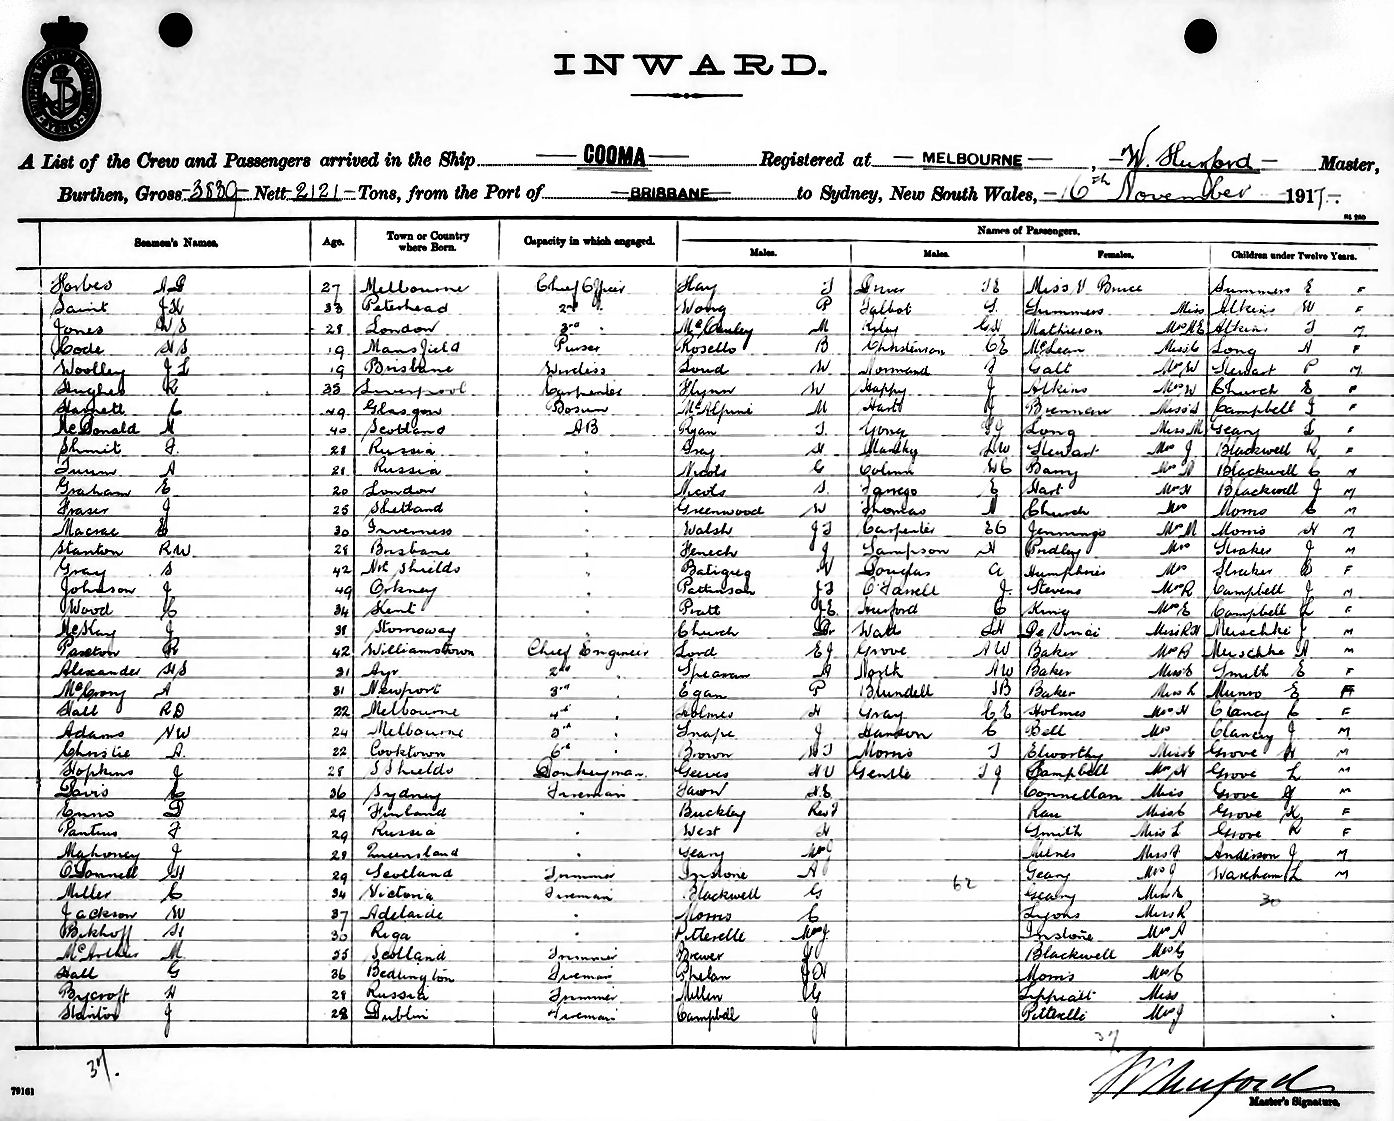 INWARD.
A List of the Crew and Passengers arrived in the Ship COOMA Registered at MELBOURNE, W. Huxford Master,
Burthen, Gross 3839 Nett 2121 Tons, from the Port of BRISBANE to Sydney, New South Wales, 16th November 1917
Seamen's Names. Age. Town or Country where Born. Capacity in which engaged. Names of Passengers.
Males. Males. Females. Children under Twelve Years.
Forbes A G 27 Melbourne Chief Officer Hay J Driver J E Miss V Bruce Summers E F
Saint J H 33 Peterhead 2nd " Wong P Talbot G. Summers Miss Atkins W F
Jones W S 28 London 3rd " McCauley M Riley G H Mathieson Mrs M E Atkins J M
Code H S 19 Mansfield Purser Rosello B Christenson C E McLean Miss C Long A F
Woolley J L 19 Brisbane Wireless Loud W Normand J Galt Mrs W Stewart P M
Hughes R 35 Liverpool Carpenter Flynn W Happy J Atkins Mrs W Church E F
Harnett C 49 Glasgow Bosun McAlpine M Hart H Brennan Miss Campbell J F
McDonald N 40 Scotland AB Ryan J Gong Long Miss M Geary L F
Shmit F. 28 Russia " Gray H W Stewart Mrs J Blackwell R F
A 21 Russia " Nicols C Barry Mrs Blackwell C M
Graham E 20 London " Nicols S. E Hart Mrs H Blackwell J M
Fraser J 25 Shetland " Greenwood W Thomas A Church Mrs Morris C M
Macrae E 30 Inverness " Walsh J J Carpenter E C Jennings Mrs M Morris H M
Stanton R W 28 Brisbane " Fenech J Sampson H Pridley Mrs Straker J M
Gray S 42 Nth Shields " Batigreg V Douglas A Humphries Mrs Straker F
Johnson J 49 Orkney " Pattinson J J O'Farrell J. Stevens Mrs R Campbell J M
Wood C 34 Kent " Pratt J E Huxford C King Mrs E Campbell L F
McKay J 38 Stornoway " Church Dr Watt De Vinci Miss R H Meischke J M
Paxton R 42 Williamstown Chief Engineer Lord E J Grove A W Baker Mrs B Meischke A M
Alexander H S 31 Ayr 2nd " Spearan A North A W Baker Miss E Smith E F
McCrory A 31 Newport 3rd " Egan P Blundell J B Baker Miss L Munro E F
Hall R D 22 Melbourne 4th " Holmes H Gray C E Holmes Mrs H Clancy C F
Adams N W 24 Melbourne 5th " Snape J Hanson C Bell Mrs Clancy J M
Christie A. 22 Cooktown 6th " Brown W J Morris J Elworthy Miss E Grove H M
Hopkins J 28 S Shields Donkeyman. Geeves N V Gentle J J Campbell Mrs N Grove L M
Davis C 36 Sydney Fireman Fawn N E Connellan Miss Grove G M
Enno D 29 Finland " Buckley Rev J Rau Miss C Grove K F
Pantius F 29 Russia " West H Smith Miss L Grove R F
Mahoney J 28 Queensland " Geary Milnes Miss J Anderson J M
O'Donnell H 29 Scotland Trimmer Instone A Geary Mrs J Wareham L M
Miller C 34 Victoria Fireman Blackwell G 62 Geary Miss E 30
Jackson W 37 Adelaide " Morris C Lyons Miss K
Bekhoff H 30 Riga " Pitterelle Mons J. Instone Mrs A
McArthur M. 35 Scotland Trimmer Brewer Blackwell Mrs G
Hall G 36 Bedlington Fireman Phelan J H Morris Mrs C
Bycroft H 28 Russia Trimmer Millen G Tippiatt Miss
Stanton J 28 Dublin Fireman Campbell J Pitterelle Mrs J
37. 37
W Huxford
Master's Signature.
79161